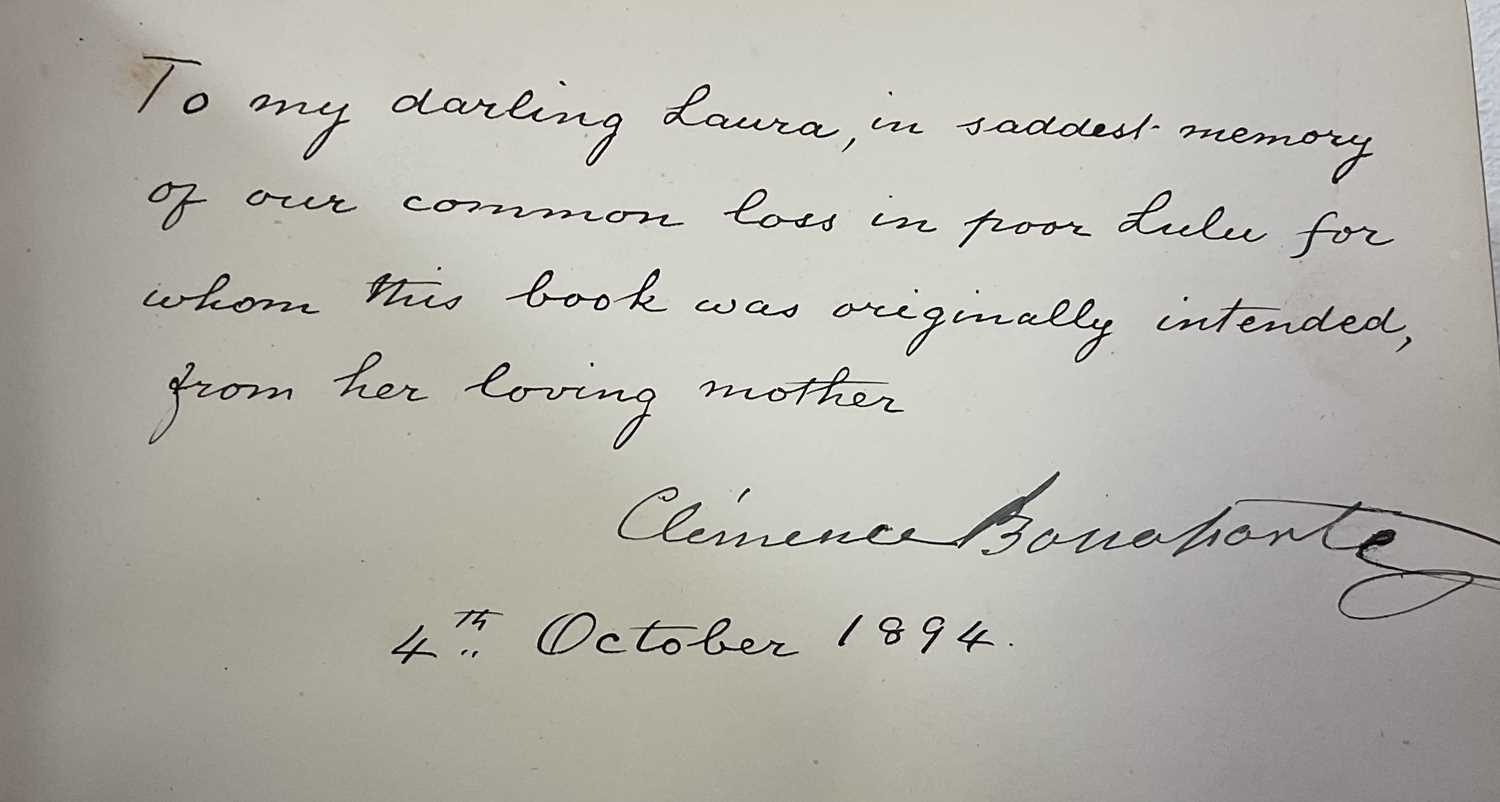 To my darling Laura, in saddest memory
of our common loss in poor Lulu for
whom this book was originally intended,
from her loving mother
Clémence Bonaparte
4th October 1894.